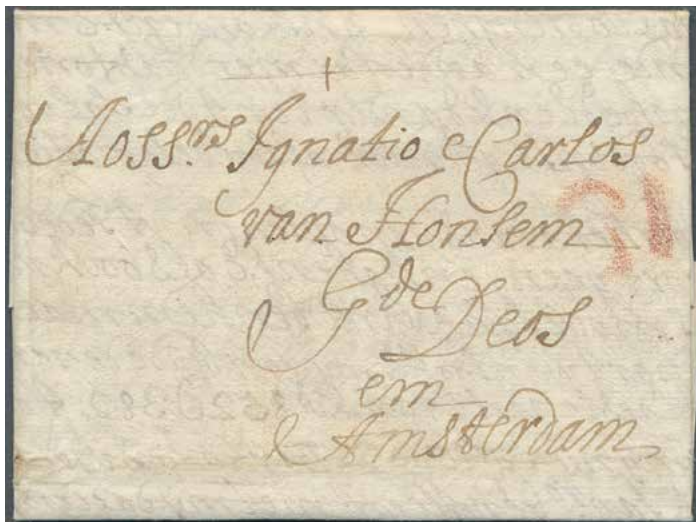 Aossrs. Ignatio e Carlos
van Honsem
Gde Deos
em
Amsterdam